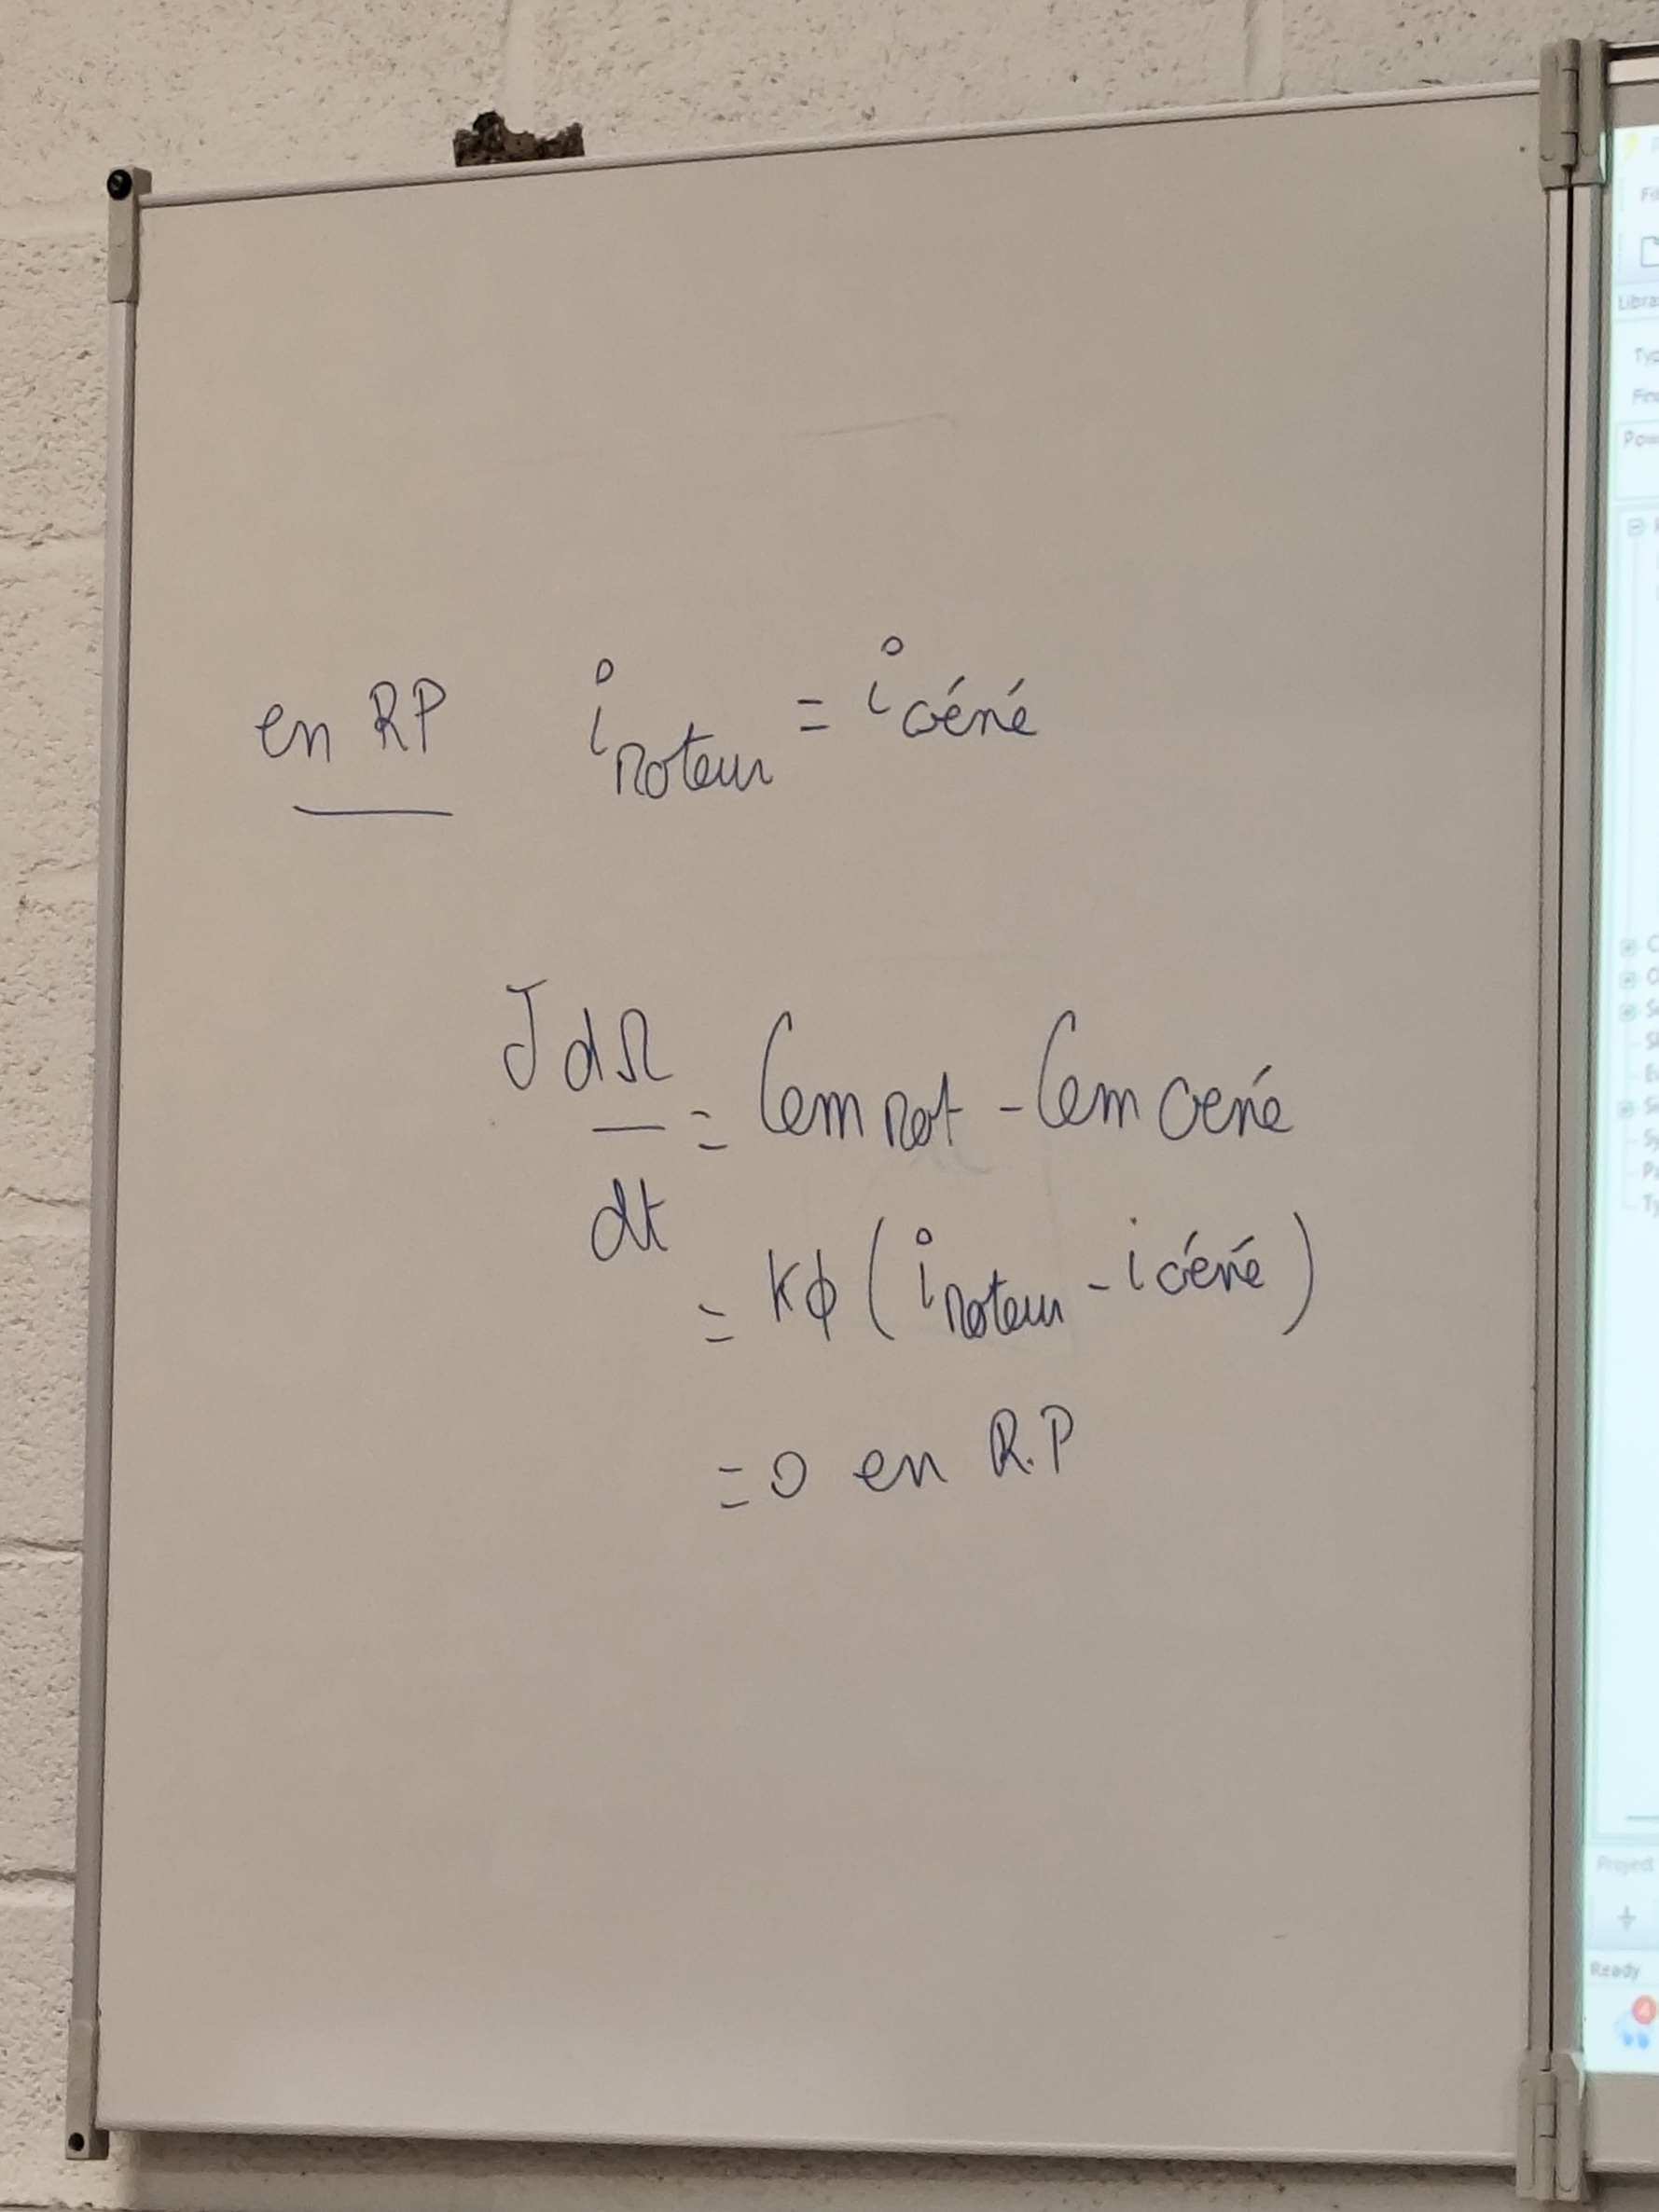 en RP i moteur = i Géné
J dΩ/dt = Cem Mot - Cem Géné
= kϕ ( i moteur - i Géné )
= 0 en R.P
Project
Ready
4